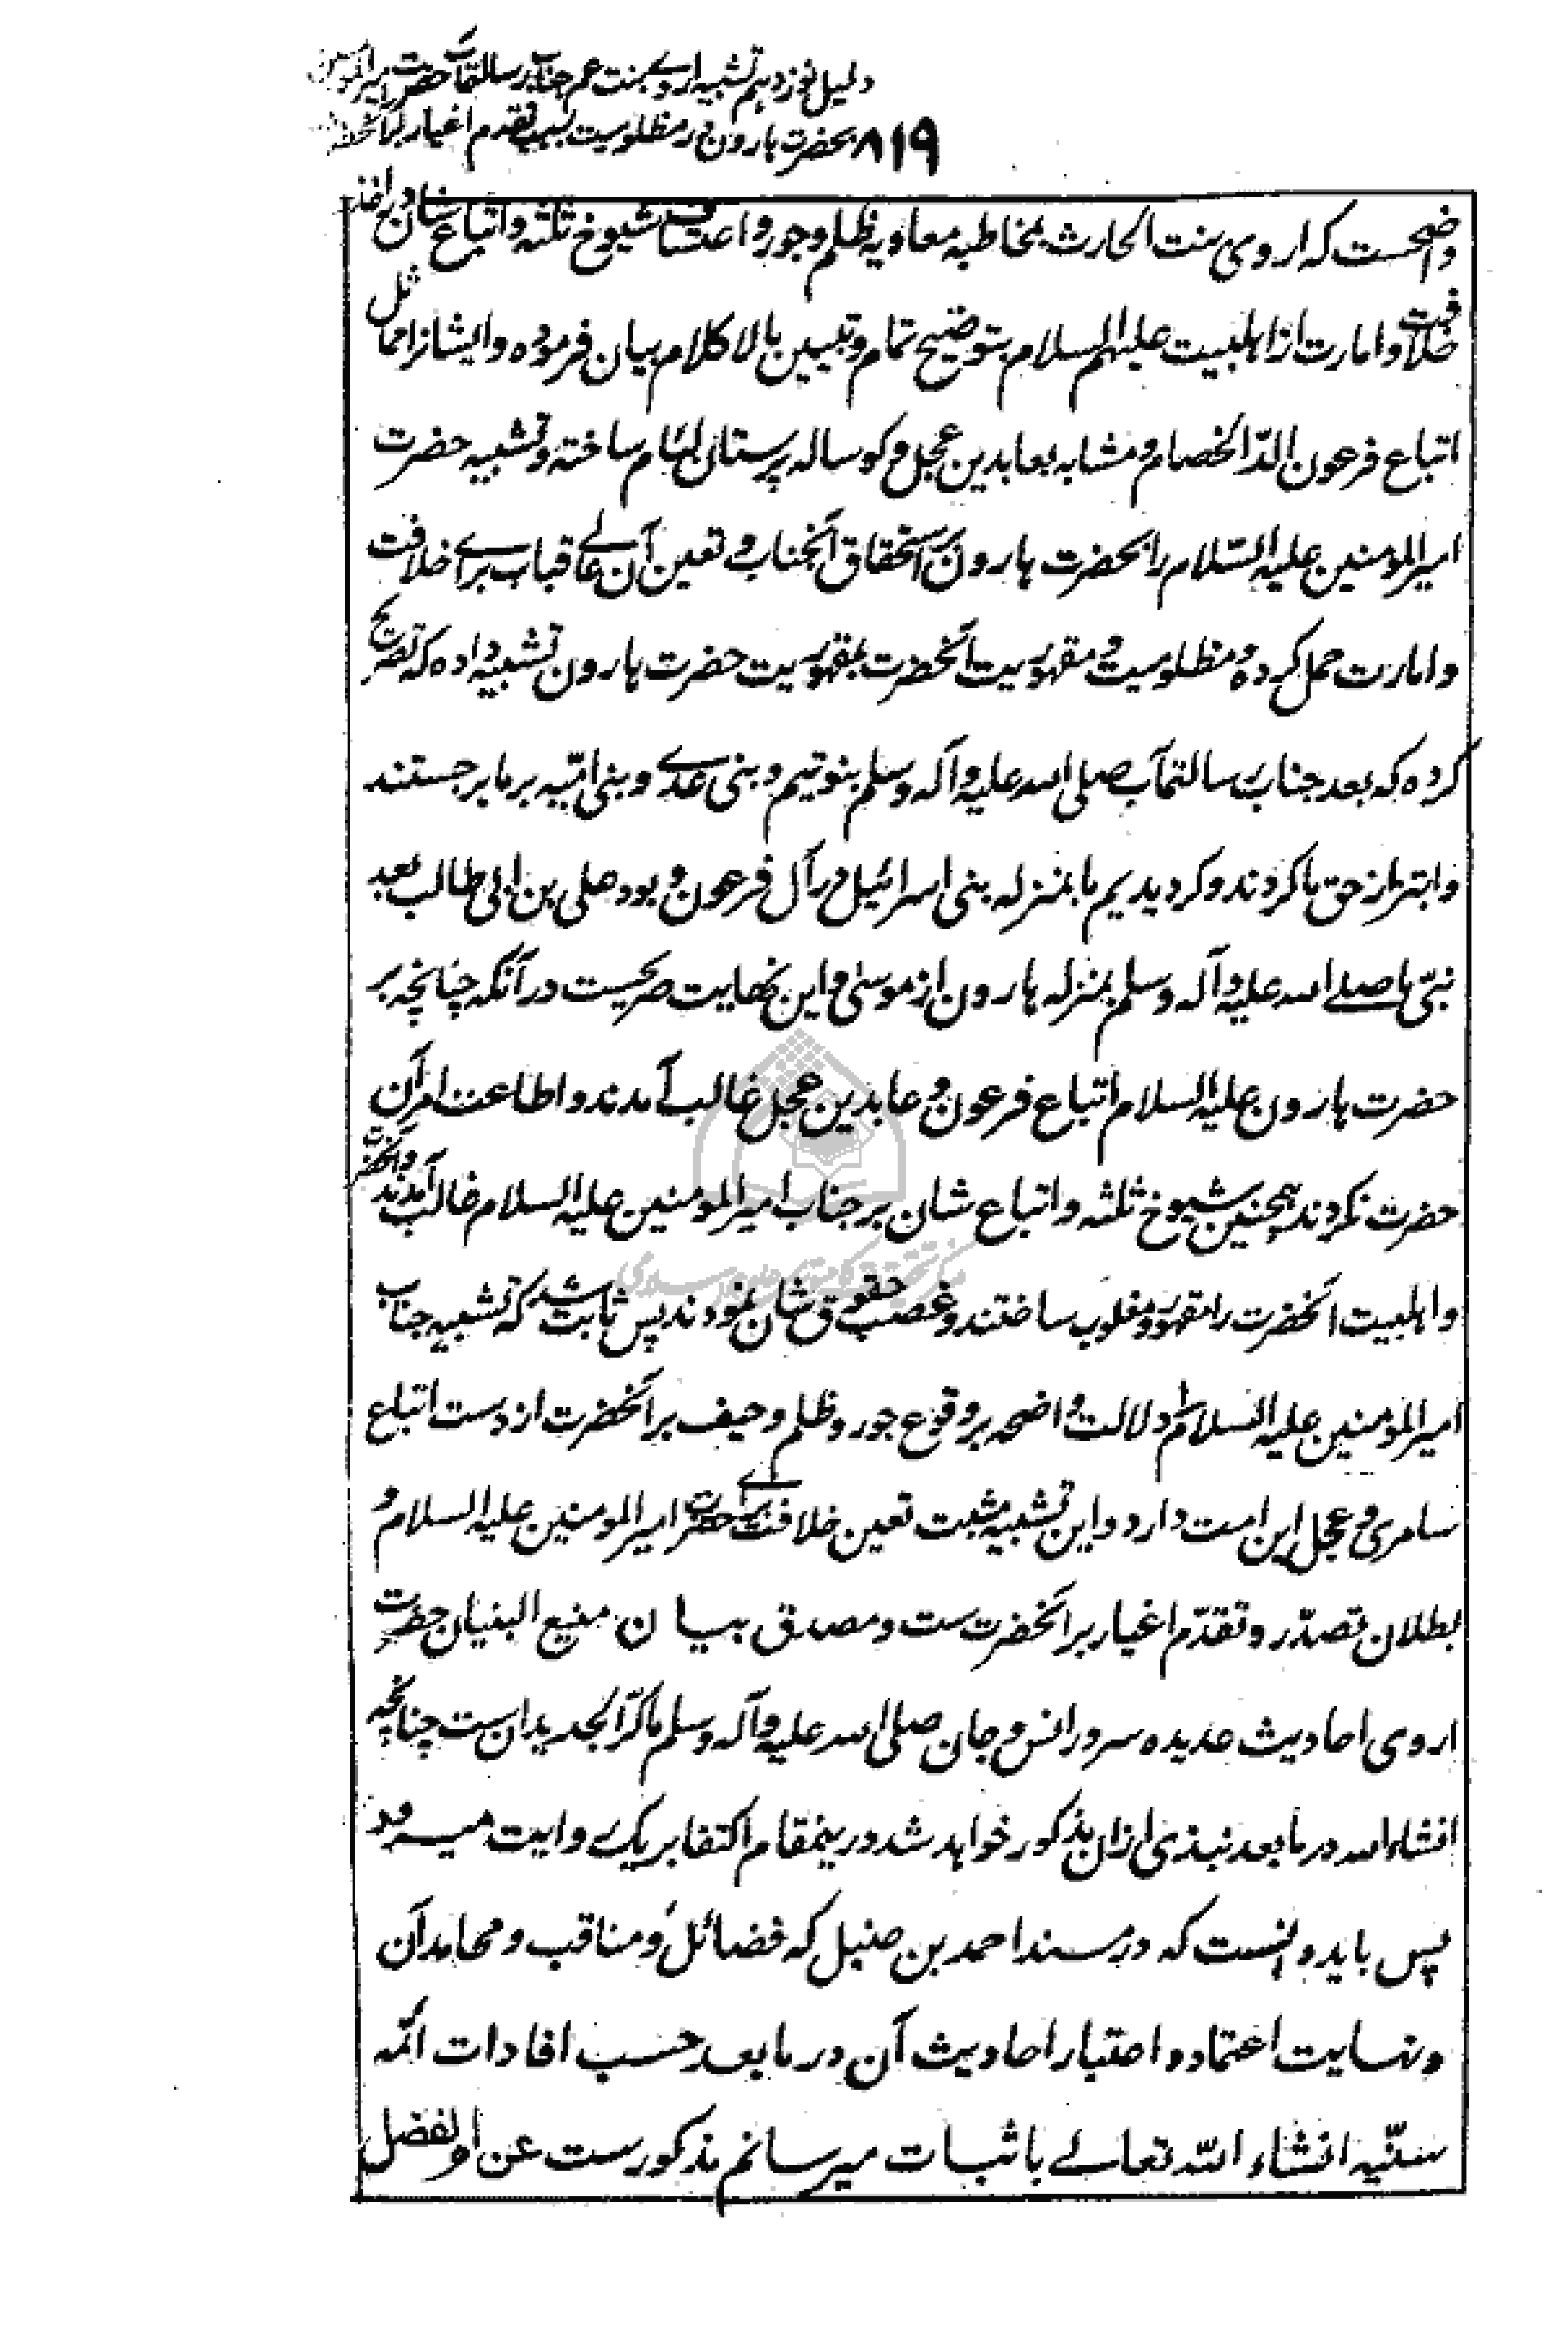 دلیل نوزدهم تشبیه اروی بنت عم جناب رسالتمآب حضرت امیر المومنین
۸۱۹ بحضرت هارون در مظلومیت بسبب تقدم اغیار
واضحست که اروی بنت الحارث بمخاطبه معاویه ظلم و جور و اعتساف شیوخ ثلثه و اتباع شان در اخذ
خلافت و امارت از اهلبیت علیهم السلام بتوضیح تمام و تبیین بالا کلام بیان فرموده و ایشانرا مماثل
اتباع فرعون الدّ الخصام و مشابه بعابدین عجل و کوساله پرستان لئام ساخته و تشبیه حضرت
امیر المومنین علیه السّلام را بحضرت هارون بر استحقاق آنجناب و تعین آن عالے قباب برے خلافت
و امارت حمل کرده و مظلومیت و مقهوریت آنحضرت بمقهوریت حضرت هارون تشبیه داده که تصریح
کرده که بعد جناب رسالتمآب صلی الله علیه و آله و سلم بنو تیم و بنی عدے و بنی امیّه بر ما برجستند
و ابتزاز حق ما کردند و کردیدیم ما بمنزله بنی اسرائیل در آل فرعون و بود علی بن ابی طالب بعد
نبیّ ما صلے الله علیه و آله و سلم بمنزله هارون از موسی و این نهایت صریحست در آنکه چنانچه بر
حضرت هارون علیه السلام اتباع فرعون و عابدین عجل غالب آمدند و اطاعت امر آن
حضرت نکردند همچنین شیوخ ثلثه و اتباع شان بر جناب امیر المومنین علیه السلام غالب آمدند و آنحضرت
و اهلبیت آنحضرت را مقهور و مغلوب ساختند و غصب حقوق شان نمودند پس ثابت شد که تشبیه جناب
امیر المومنین علیه السلام دلالت واضحه بر وقوع جور و ظلم و حیف بر آنحضرت از دست اتباع
سامری و عجل این امت دارد و این تشبیه مثبت تعین خلافت برای حضرت امیر المومنین علیه السلام و
بطلان تصدّر و تقدّم اغیار بر آنحضرت ست و مصدق بیان منیع البنیان حضرت
اروی احادیث عدیده سرور انس و جان صلی الله علیه و آله و سلم ما کرّ الجدیدان ست چنانچه
انشاء الله در ما بعد نبذی ازان مذکور خواهد شد درینمقام اکتفا بر یک روایت میرود
پس باید دانست که در مسند احمد بن حنبل که فضائل و مناقب و محامد آن
و نهایت اعتماد و اعتبار احادیث آن در ما بعد حسب افادات ائمّه
سنّیه انشاء الله تعالے باثبات میرسانم مذکورست عن ام الفضل